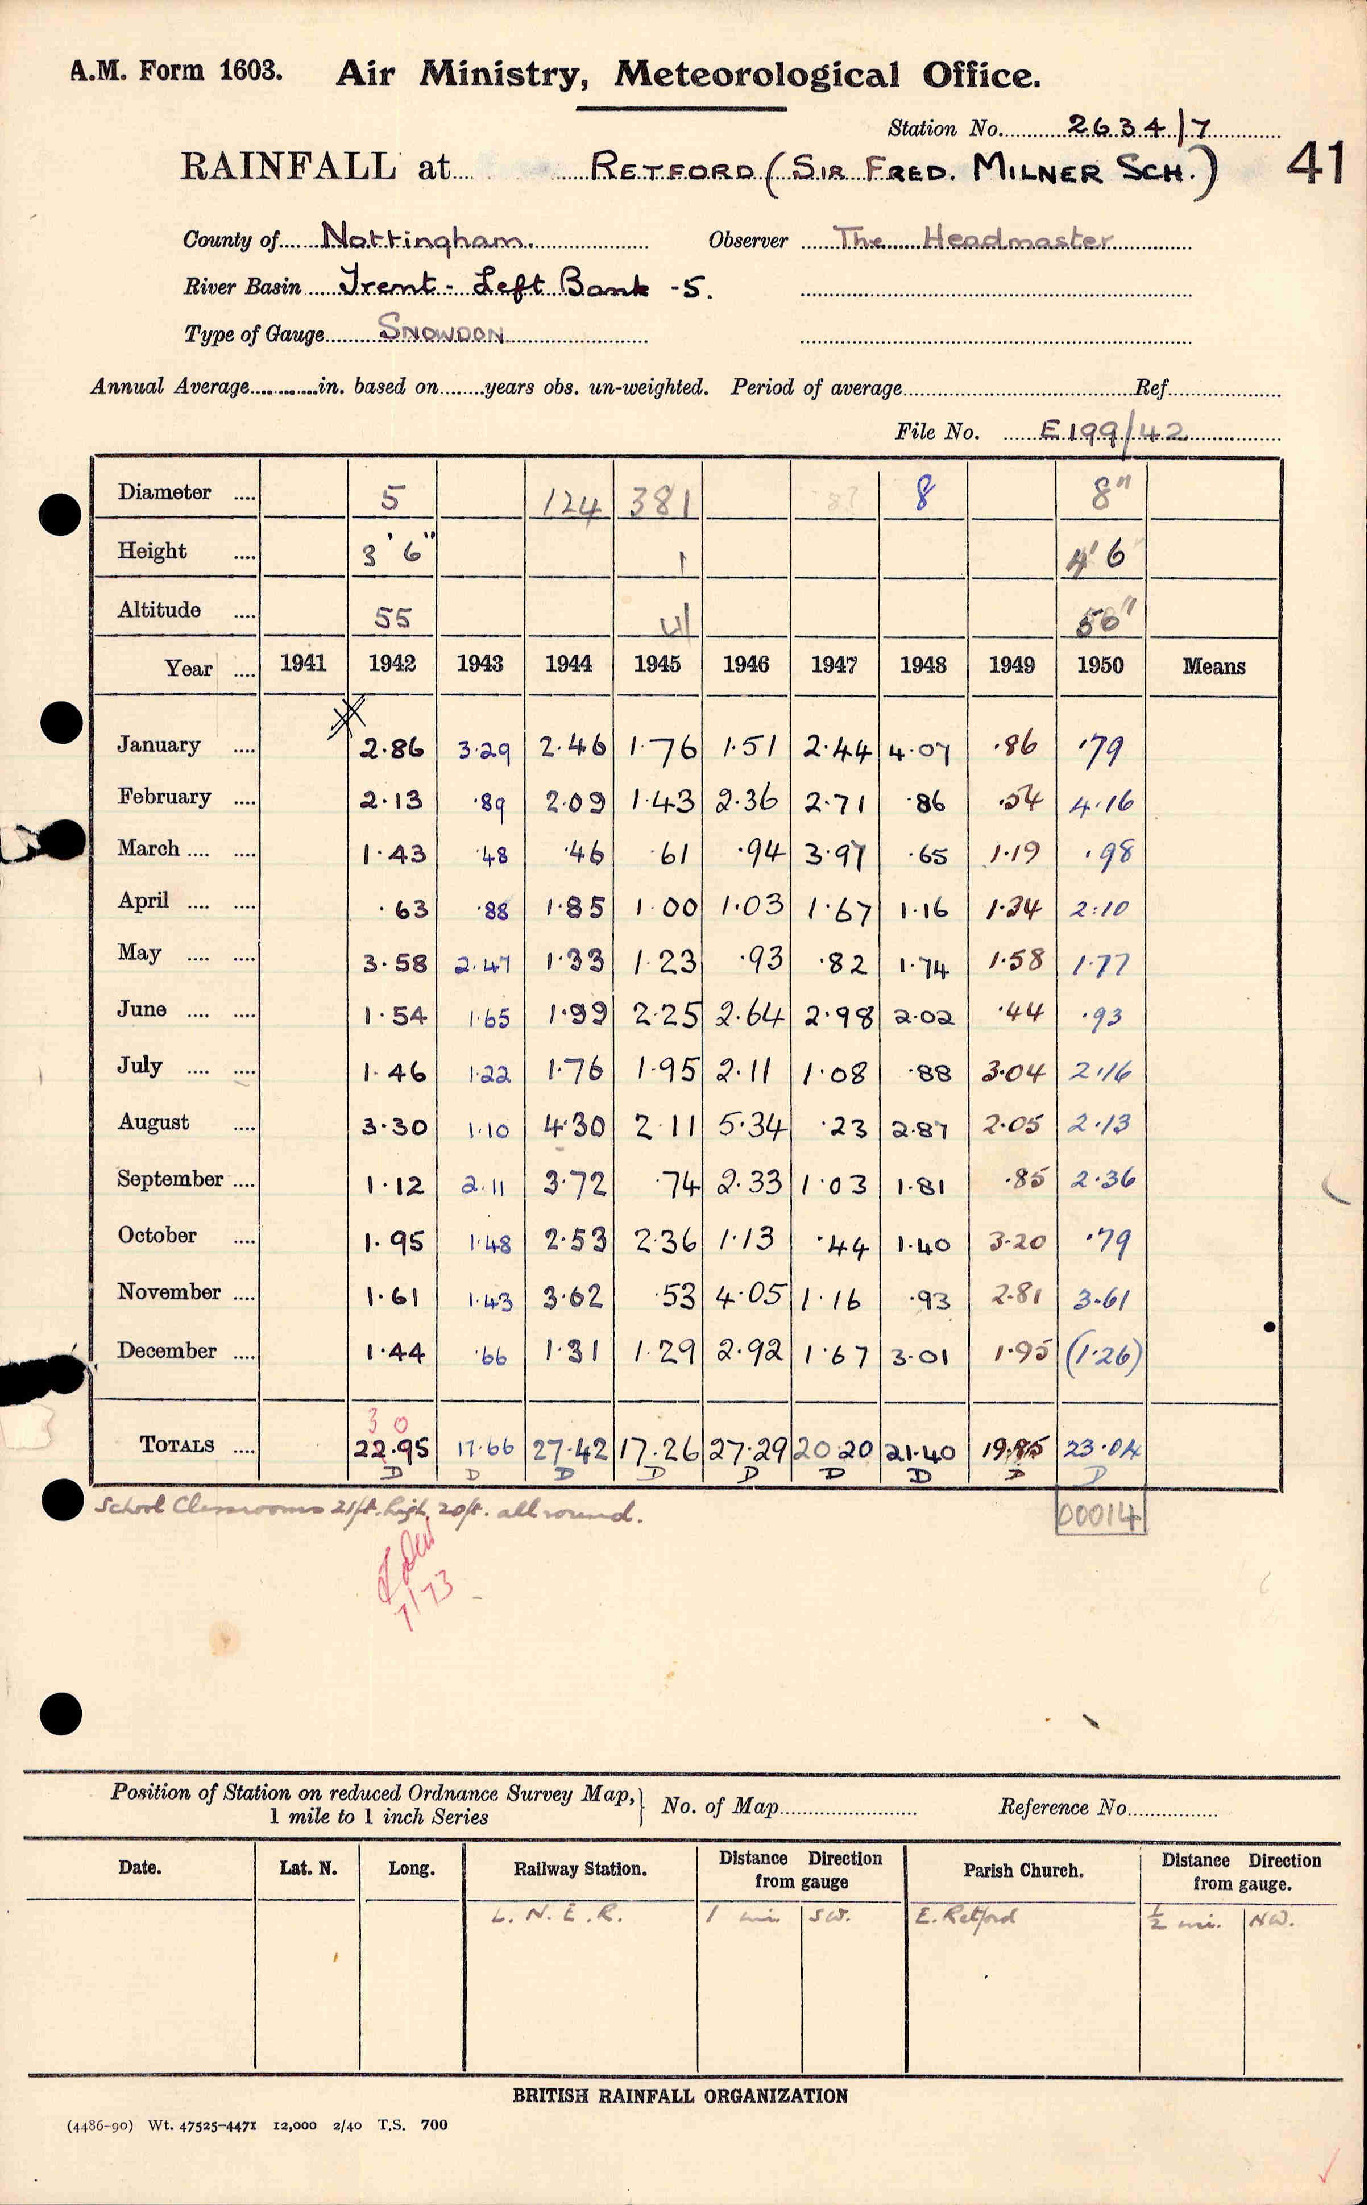 A.M. Form 1603. Air Ministry, Meteorological Office.
Station No. 2634/7
RAINFALL at RETFORD (SIR FRED. MILNER SCH.) 41
County of Nottingham. Observer The Headmaster
River Basin Trent - Left Bank - 5.
Type of Gauge SNOWDON
Annual Average in. based on years obs. un-weighted. Period of average Ref.
File No. E199/42
Diameter 5 124 381 8 8"
Height 3' 6" 1 4' 6"
Altitude 55 41
Year 1941 1942 1943 1944 1945 1946 1947 1948 1949 1950 Means
January 2.86 3.29 2.46 1.76 1.51 2.44 4.07 .86 .79
February 2.13 .89 2.09 1.43 2.36 2.71 .86 .54 4.16
March 1.43 .48 .46 .61 .94 3.97 .65 1.19 .98
April .63 .88 1.85 1.00 1.03 1.67 1.16 1.34 2.10
May 3.58 2.47 1.33 1.23 .93 .82 1.74 1.58 1.77
June 1.54 1.65 1.99 2.25 2.64 2.98 2.02 .44 .93
July 1.46 1.22 1.76 1.95 2.11 1.08 .88 3.04 2.16
August 3.30 1.10 4.30 2.11 5.34 .23 2.87 2.05 2.13
September 1.12 2.11 3.72 .74 2.33 1.03 1.81 .85 2.36
October 1.95 1.48 2.53 2.36 1.13 .44 1.40 3.20 .79
November 1.61 1.43 3.62 .53 4.05 1.16 .93 2.81 3.61
December 1.44 .66 1.31 1.29 2.92 1.67 3.01 1.95 (1.26)
30
TOTALS 22.95 17.66 27.42 17.26 27.29 20.20 21.40 19.85 23.04
D D D D D D D D D
School Classrooms 21ft. high, 20ft. all round. 00014
7/73
Position of Station on reduced Ordnance Survey Map, No. of Map Reference No.
1 mile to 1 inch Series
Date. Lat. N. Long. Railway Station. Distance Direction from gauge Parish Church. Distance Direction from gauge.
L. N. E. R. 1 mi. SW. E. Retford ½ mi. NW.
BRITISH RAINFALL ORGANIZATION
(4486-90) Wt. 47525-4471 12,000 2/40 T.S. 700